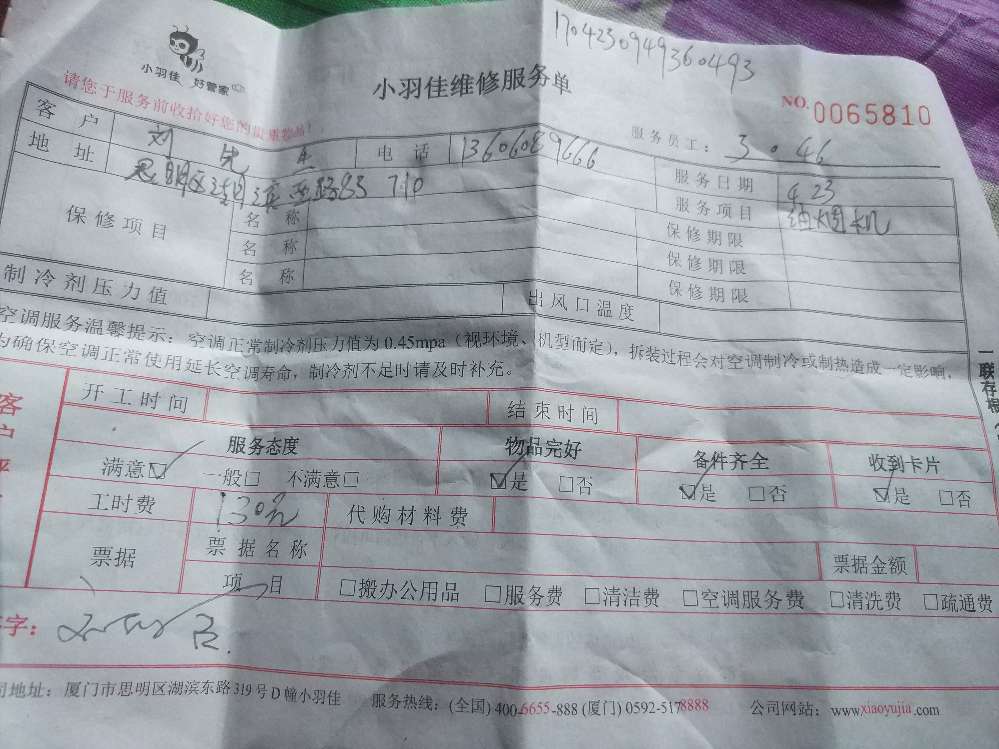 1704230949360493
小羽佳 好管家
小羽佳维修服务单
NO.0065810
请您于服务前收拾好您的贵重物品!
服务员工: 3.46
客户 刘先生 电话 13606089666 服务日期 4.23
地址 思明区湖滨 83 710 服务项目 机
保修项目 名称 保修期限
名称 保修期限
名称 保修期限
制冷剂压力值 出风口温度
空调服务温馨提示:空调正常制冷剂压力值为0.45mpa(视环境、机型而定),拆装过程会对空调制冷或制热造成一定影响,
为确保空调正常使用延长空调寿命,制冷剂不足时请及时补充。
一联存根
开工时间 结束时间
客户
服务态度 物品完好 备件齐全 收到卡片
满意☑ 一般□ 不满意□ ☑是 □否 ☑是 □否 ☑是 □否
工时费 130元 代购材料费
票据 票据名称 票据金额
项目 □搬办公用品 □服务费 □清洁费 □空调服务费 □清洗费 □疏通费
字:
司地址:厦门市思明区湖滨东路319号D幢小羽佳 服务热线:(全国)400-6655-888 (厦门)0592-5178888 公司网站:www.xiaoyujia.com